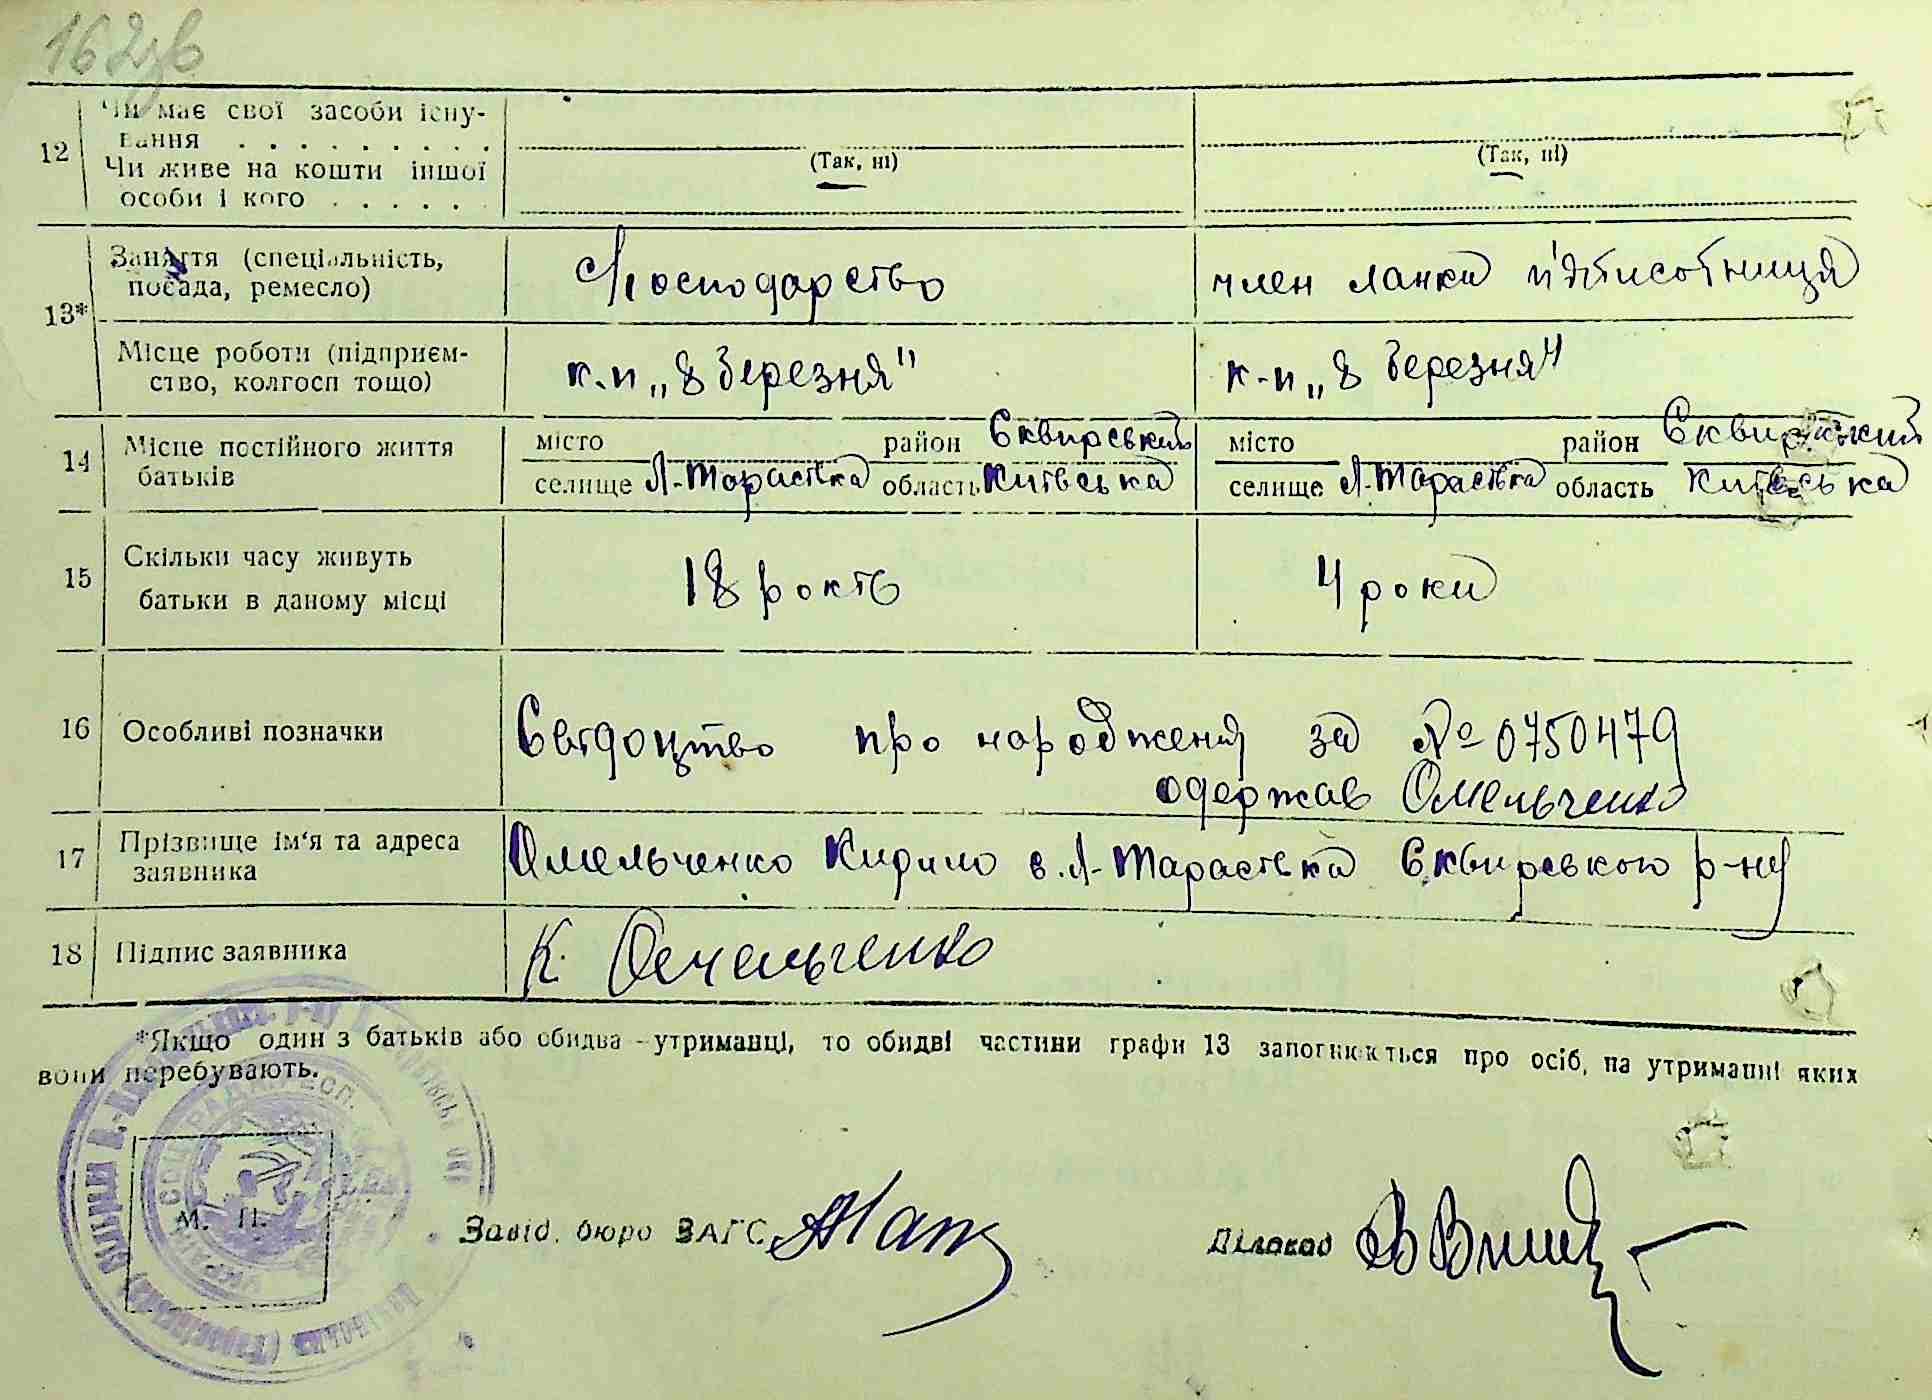 162зв
12
Чи має свої засоби існу-
вання . . . . . . . . .
Чи живе на кошти іншої
особи і кого . . . . . .
(Так, ні)
(Так, ні)
13*
Заняття (спеціальність,
посада, ремесло)
Господарство
член ланки п'ятисотниця
Місце роботи (підприєм-
ство, колгосп тощо)
к-п „8 Березня"
к-п „8 Березня"
14
Місце постійного життя
батьків
місто район Сквирський
селище Л-Тарасівка область Київська
місто район Сквирський
селище Л-Тарасівка область Київська
15
Скільки часу живуть
батьки в даному місці
18 років
4 роки
16
Особливі позначки
Свідоцтво про народженя за № 0750479
одержав Омельченко
17
Прізвище ім'я та адреса
заявника
Омельченко Кирило с. Л-Тарасівка Сквирського р-ну
18
Підпис заявника
К. Омельченко
*Якщо один з батьків або обидва - утриманці, то обидві частини графи 13 заповнюються про осіб, на утриманні яких
вони перебувають.
М. П.
Завід. бюро ЗАГС
Діловод